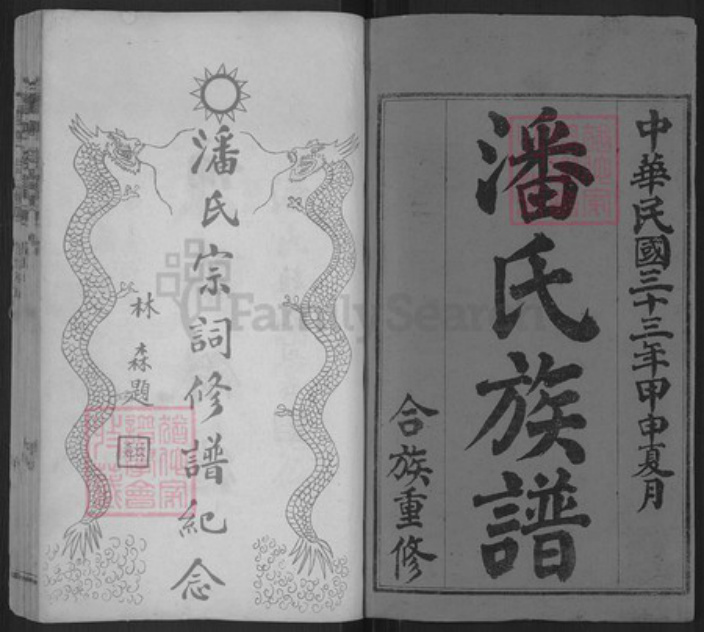 中華民國三十三年甲申夏月
潘氏族譜
合族重修
潘氏宗詞修譜紀念
林森題
FamilySearch